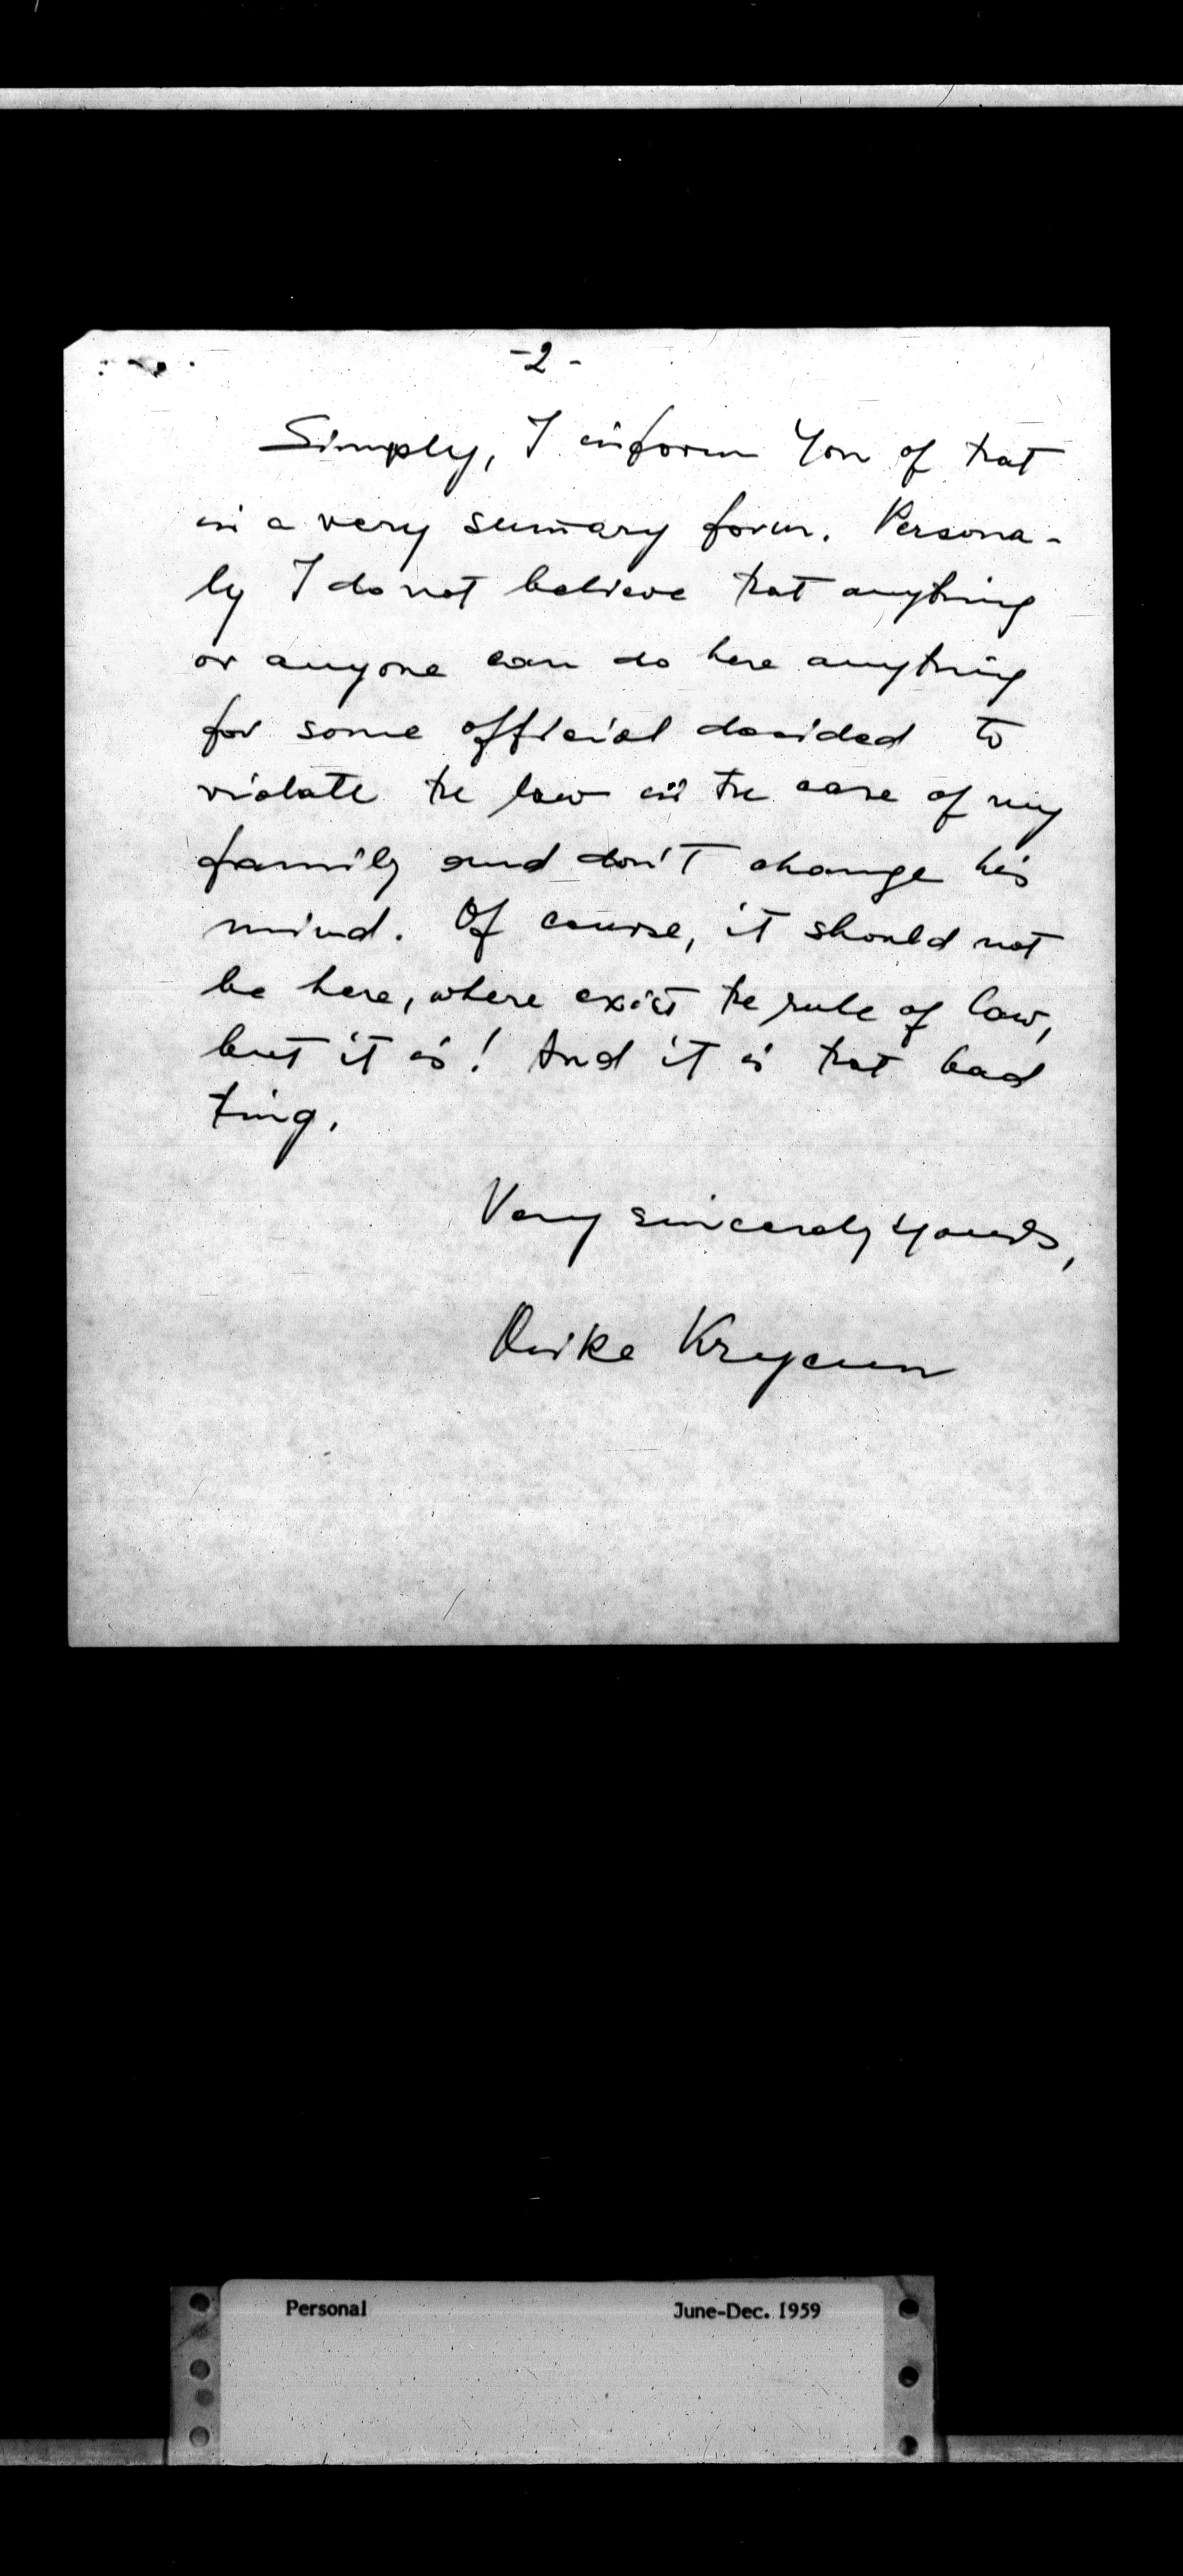 -2-
Simply, I inform You of trat
in a very sumary form. Persona-
ly I do not believe trat anytring
or anyone can do here anytring
for some official decided to
violate tre law in tre case of my
family and don't change his
mind. Of course, it should not
be here, where exist tre rule of law,
but it is! And it is trat bad
tring.
Very sincerely yours,
Krycun
Personal June-Dec. 1959